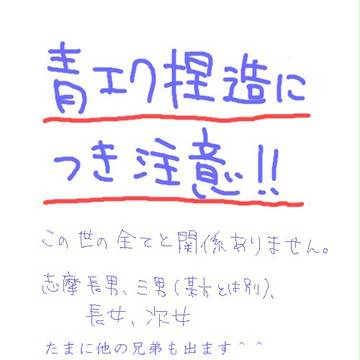 青エク捏造に
つき注意!!
この世の全てと関係ありません。
志摩長男、三男(某方とは別)、
長女、次女
たまに他の兄弟も出ます^^